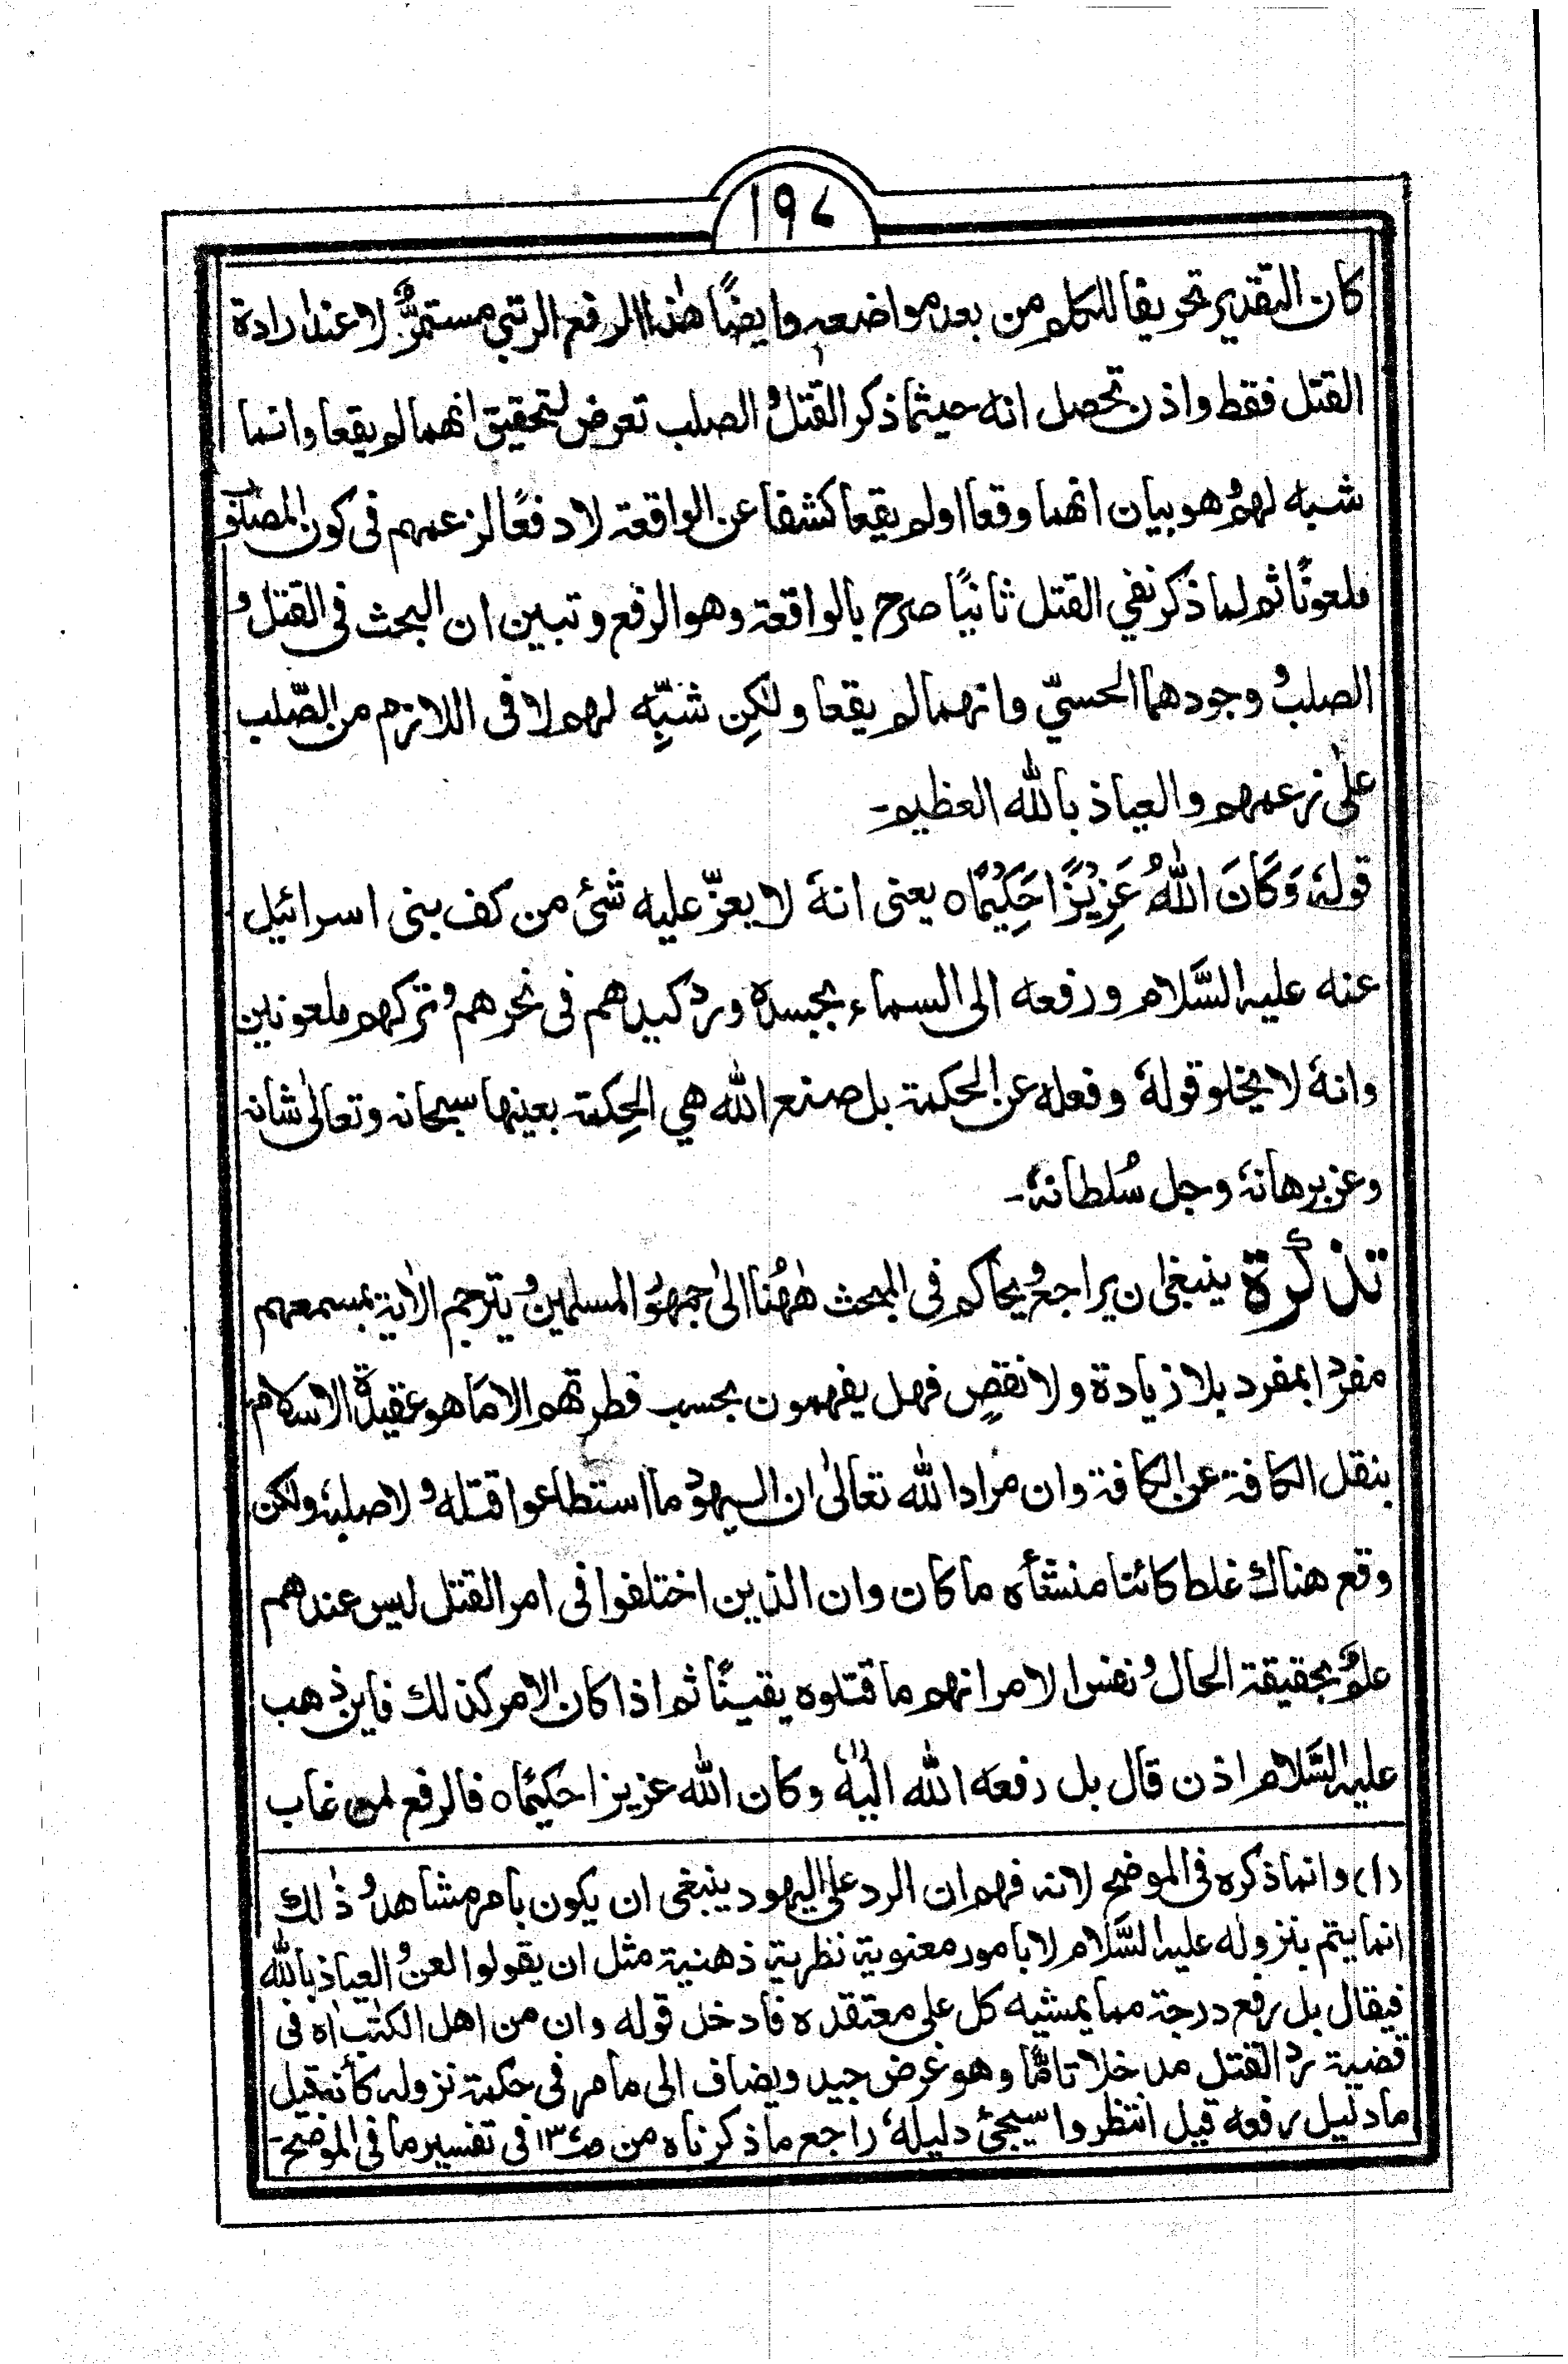 ۱۹۷
كان التقدير تحريفا للكلم من بعد مواضعه وايضًا هٰذا الرفع الرتبي مستمرٌّ لا عند ارادة
القتل فقط واذن تحصل انه حيثما ذكر القتل و الصلب تعرض لتحقيق انهما لم يقعا وانما
شبه لهم و هو بيان انهما وقعا اولم يقعا كشفا عن الواقعة لا دفعًا لزعمهم فى كون المصلوب
ملعونًا ثم لما ذكر نفي القتل ثانيًا صرح بالواقعة وهو الرفع و تبين ان البحث فى القتل و
الصلب و وجودهما الحسيّ وانهما لم يقعا ولٰكِن شُبِّه لهم لا فى اللازم من الصّلب
علٰى زعمهم والعياذ بالله العظيم۔
قوله وَكَانَ اللّٰهُ عَزِيْزًا حَكِيْمًا ٥ يعنى انهٗ لا يعزّ عليه شئ من كف بنى اسرائيل
عنه عليه السَّلام ورفعه الى السماء بجسده ورد كيدهم فى نحرهم و تركهم ملعونين
وانهٗ لا يخلو قولهٗ وفعله عن الحكمة بل صنع الله هي الحِكمة بعينها سبحانه وتعالٰى شانه
وعز برهانهٗ وجل سُلطانهٗ۔
تذكرة ينبغى ان يراجع و يحاكم فى المبحث هٰهُنا الىٰ جمهور المسلمين و يترجم الاٰية بمسمعهم
مفردًا بمفرد بلا زيادة ولا نقصٍ فهل يفهمون بحسب فطرتهم الا ما هو عقيدة الاسلام
بنقل الكافة عن الكافة وان مراد الله تعالىٰ ان اليهود ما استطاعوا قتله و لا صلبه ولكن
وقع هناك غلط كائنا منشأه ما كان وان الذين اختلفوا فى امر القتل ليس عندهم
علم بحقيقة الحال و نفس الامر انهم ما قتلوه يقينًا ثم اذا كان الامر كذلك فاين ذهب
عليه السَّلام اذن قال بل رفعه الله اليه (١) وكان الله عزيزا حكيمًا ٥ فالرفع لمن غاب
(١) وانما ذكره فى الموضح لانه فهم ان الرد على اليهود ينبغى ان يكون بامر مشاهد و ذٰلك
انما يتم بنزوله عليه السَّلام لا بامور معنوية نظرية ذهنية مثل ان يقولوا لعن و العياذ بالله
فيقال بل رفع درجة مما يمشيه كل على معتقده فادخل قوله وان من اهل الكتٰب اه فى
قضية رد القتل مدخلا تامًّا وهو غرض جيد ويضاف الى ما مر فى حكمة نزوله كأنه قيل
ما دليل رفعه قيل انتظروا سيجئ دليلهٗ راجع ما ذكرناه من ص١٣ فى تفسير ما فى الموضح۔